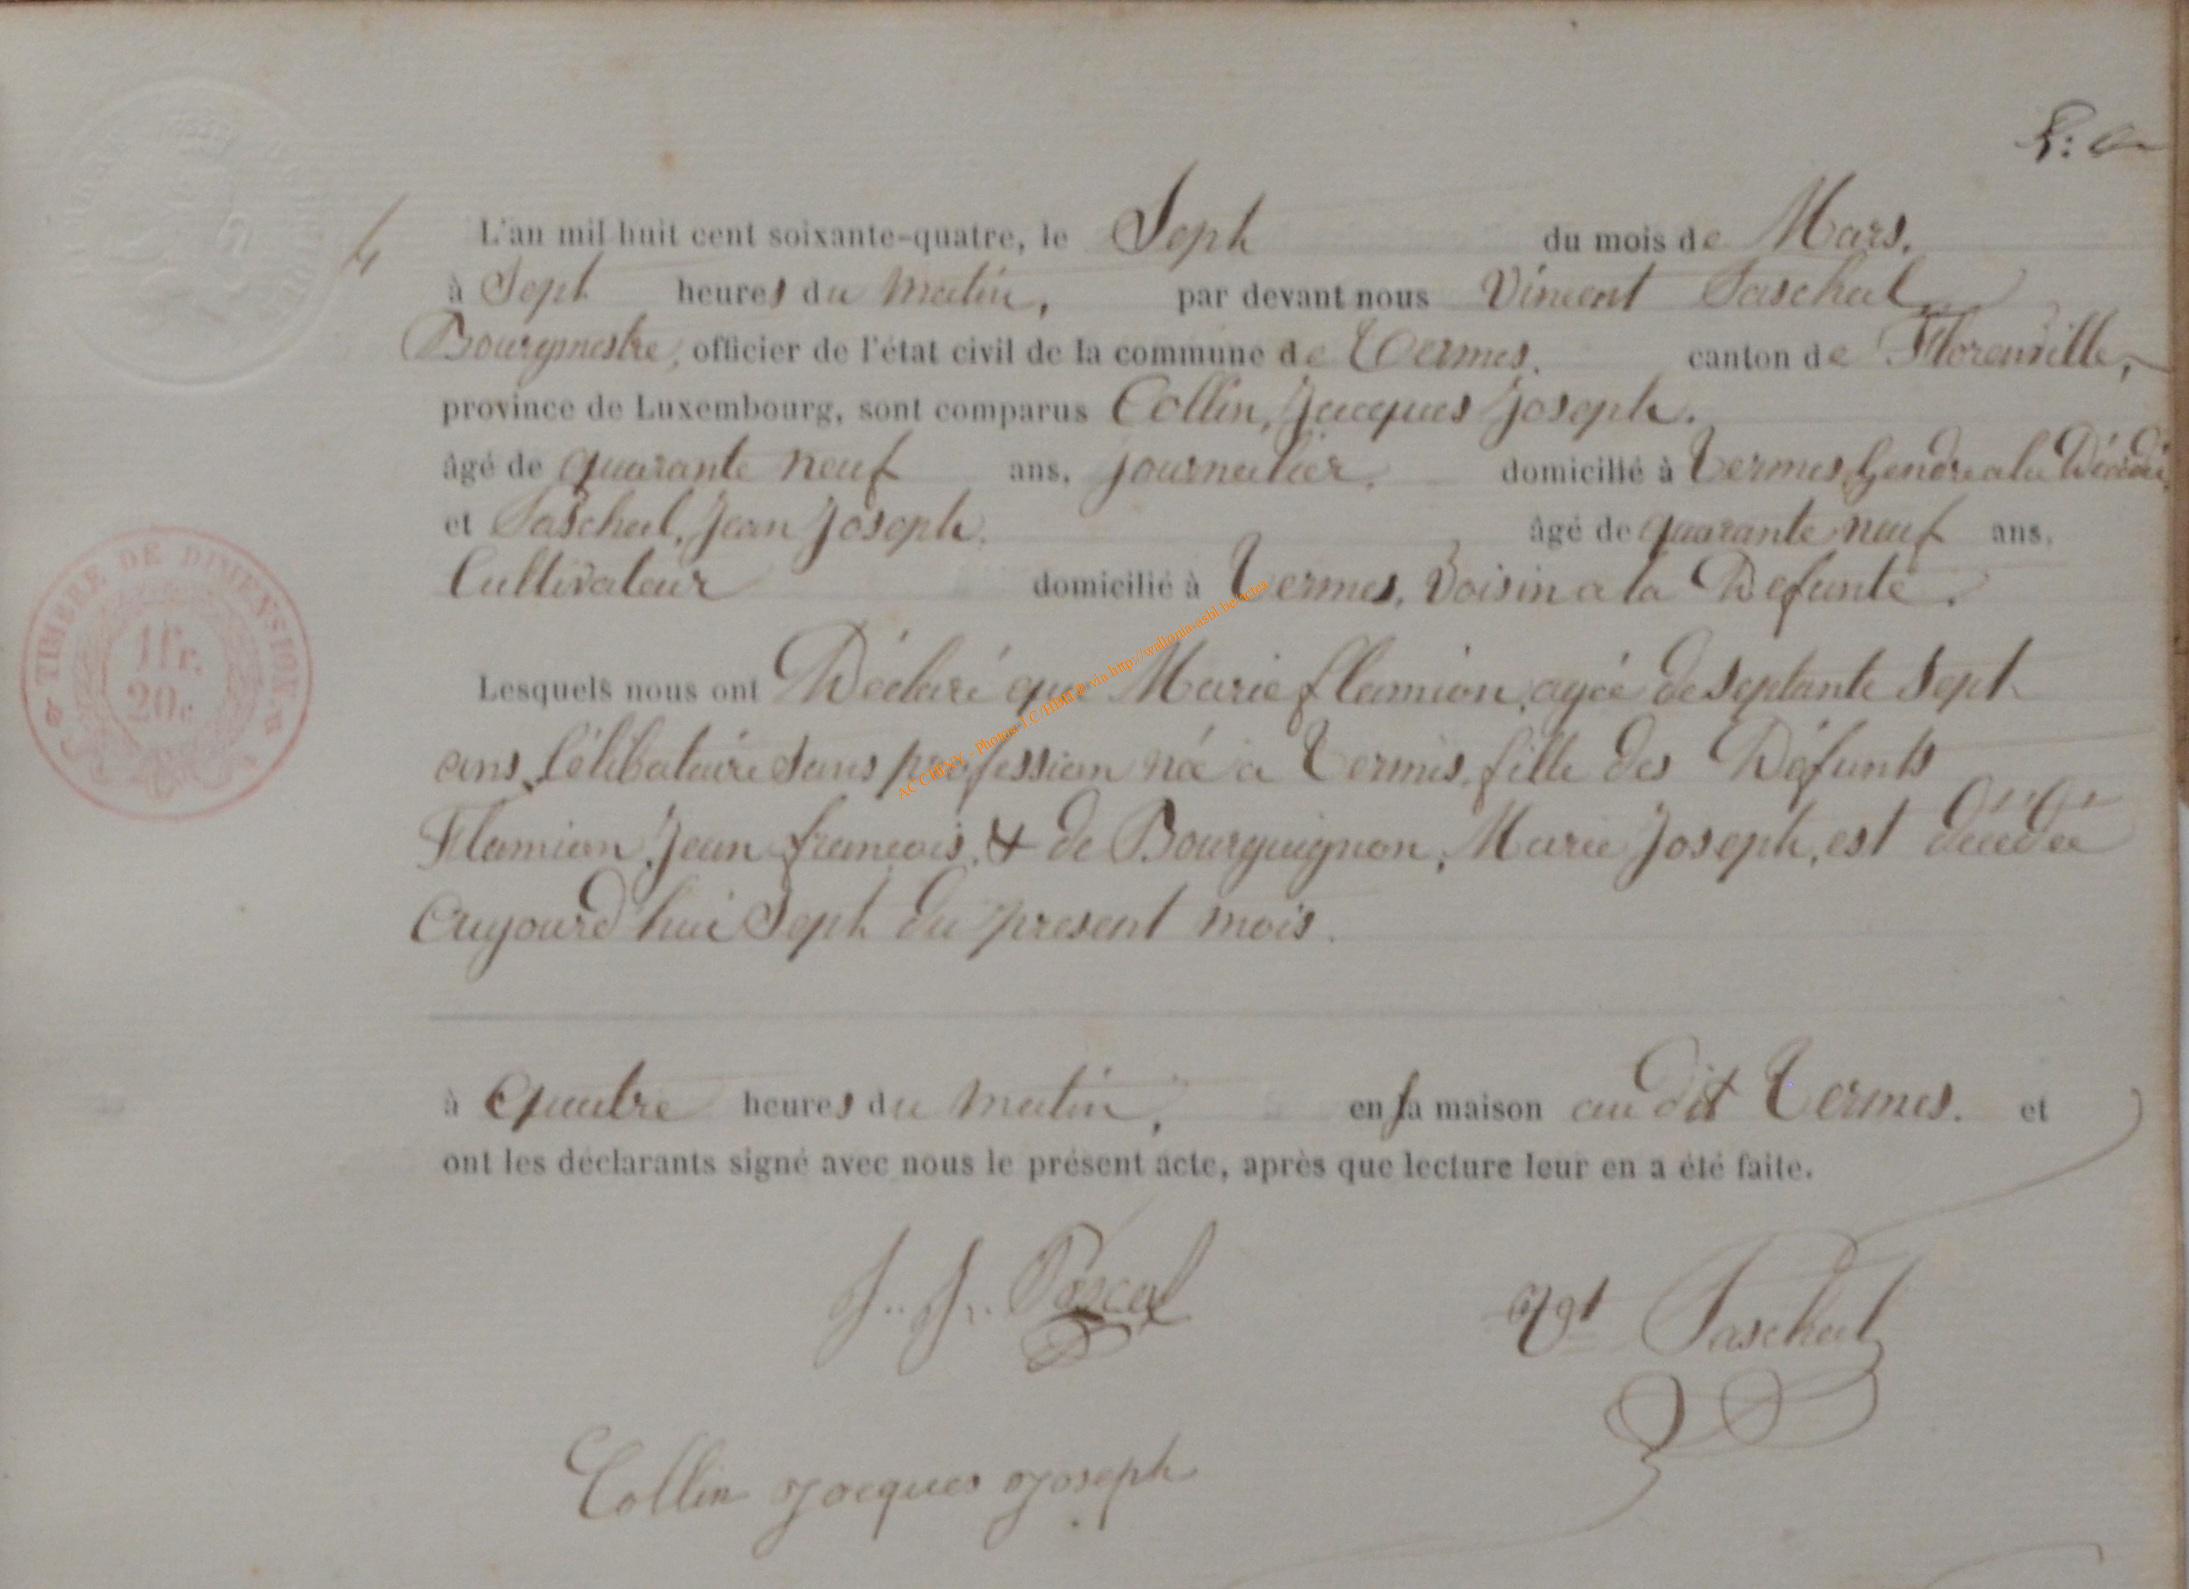 4
L'an mil huit cent soixante-quatre, le Sept du mois de Mars,
à Sept heures du matin, par devant nous Vincent Paschal
Bourgmestre, officier de l'état civil de la commune de Termes, canton de Florenville,
province de Luxembourg, sont comparus Collin, Jacques Joseph.
âgé de quarante neuf ans, journalier, domicilié à Termes, Gendre a la Décédée
et Paschal, Jean Joseph. âgé de quarante neuf ans,
Cultivateur domicilié à Termes, Voisin a la Defunte.
Lesquels nous ont Déclaré que Marie flamion, agée de septante sept
ans, Célibataire sans profession née a Termes, fille des Défunts
Flamion, Jean francois, & de Bourguignon, Marie Joseph, est décédée
aujourd'hui Sept du present mois.
à quatre heures du matin, en sa maison au dit Termes. et
ont les déclarants signé avec nous le présent acte, après que lecture leur en a été faite.
J. J. Pascal Vnt Paschal
Collin Jacques Joseph
TIMBRE DE DIMENSION
1 Fr.
20c
AC CHINY - Photos J.C HBILP via http://wallonia-asbl.be/actes